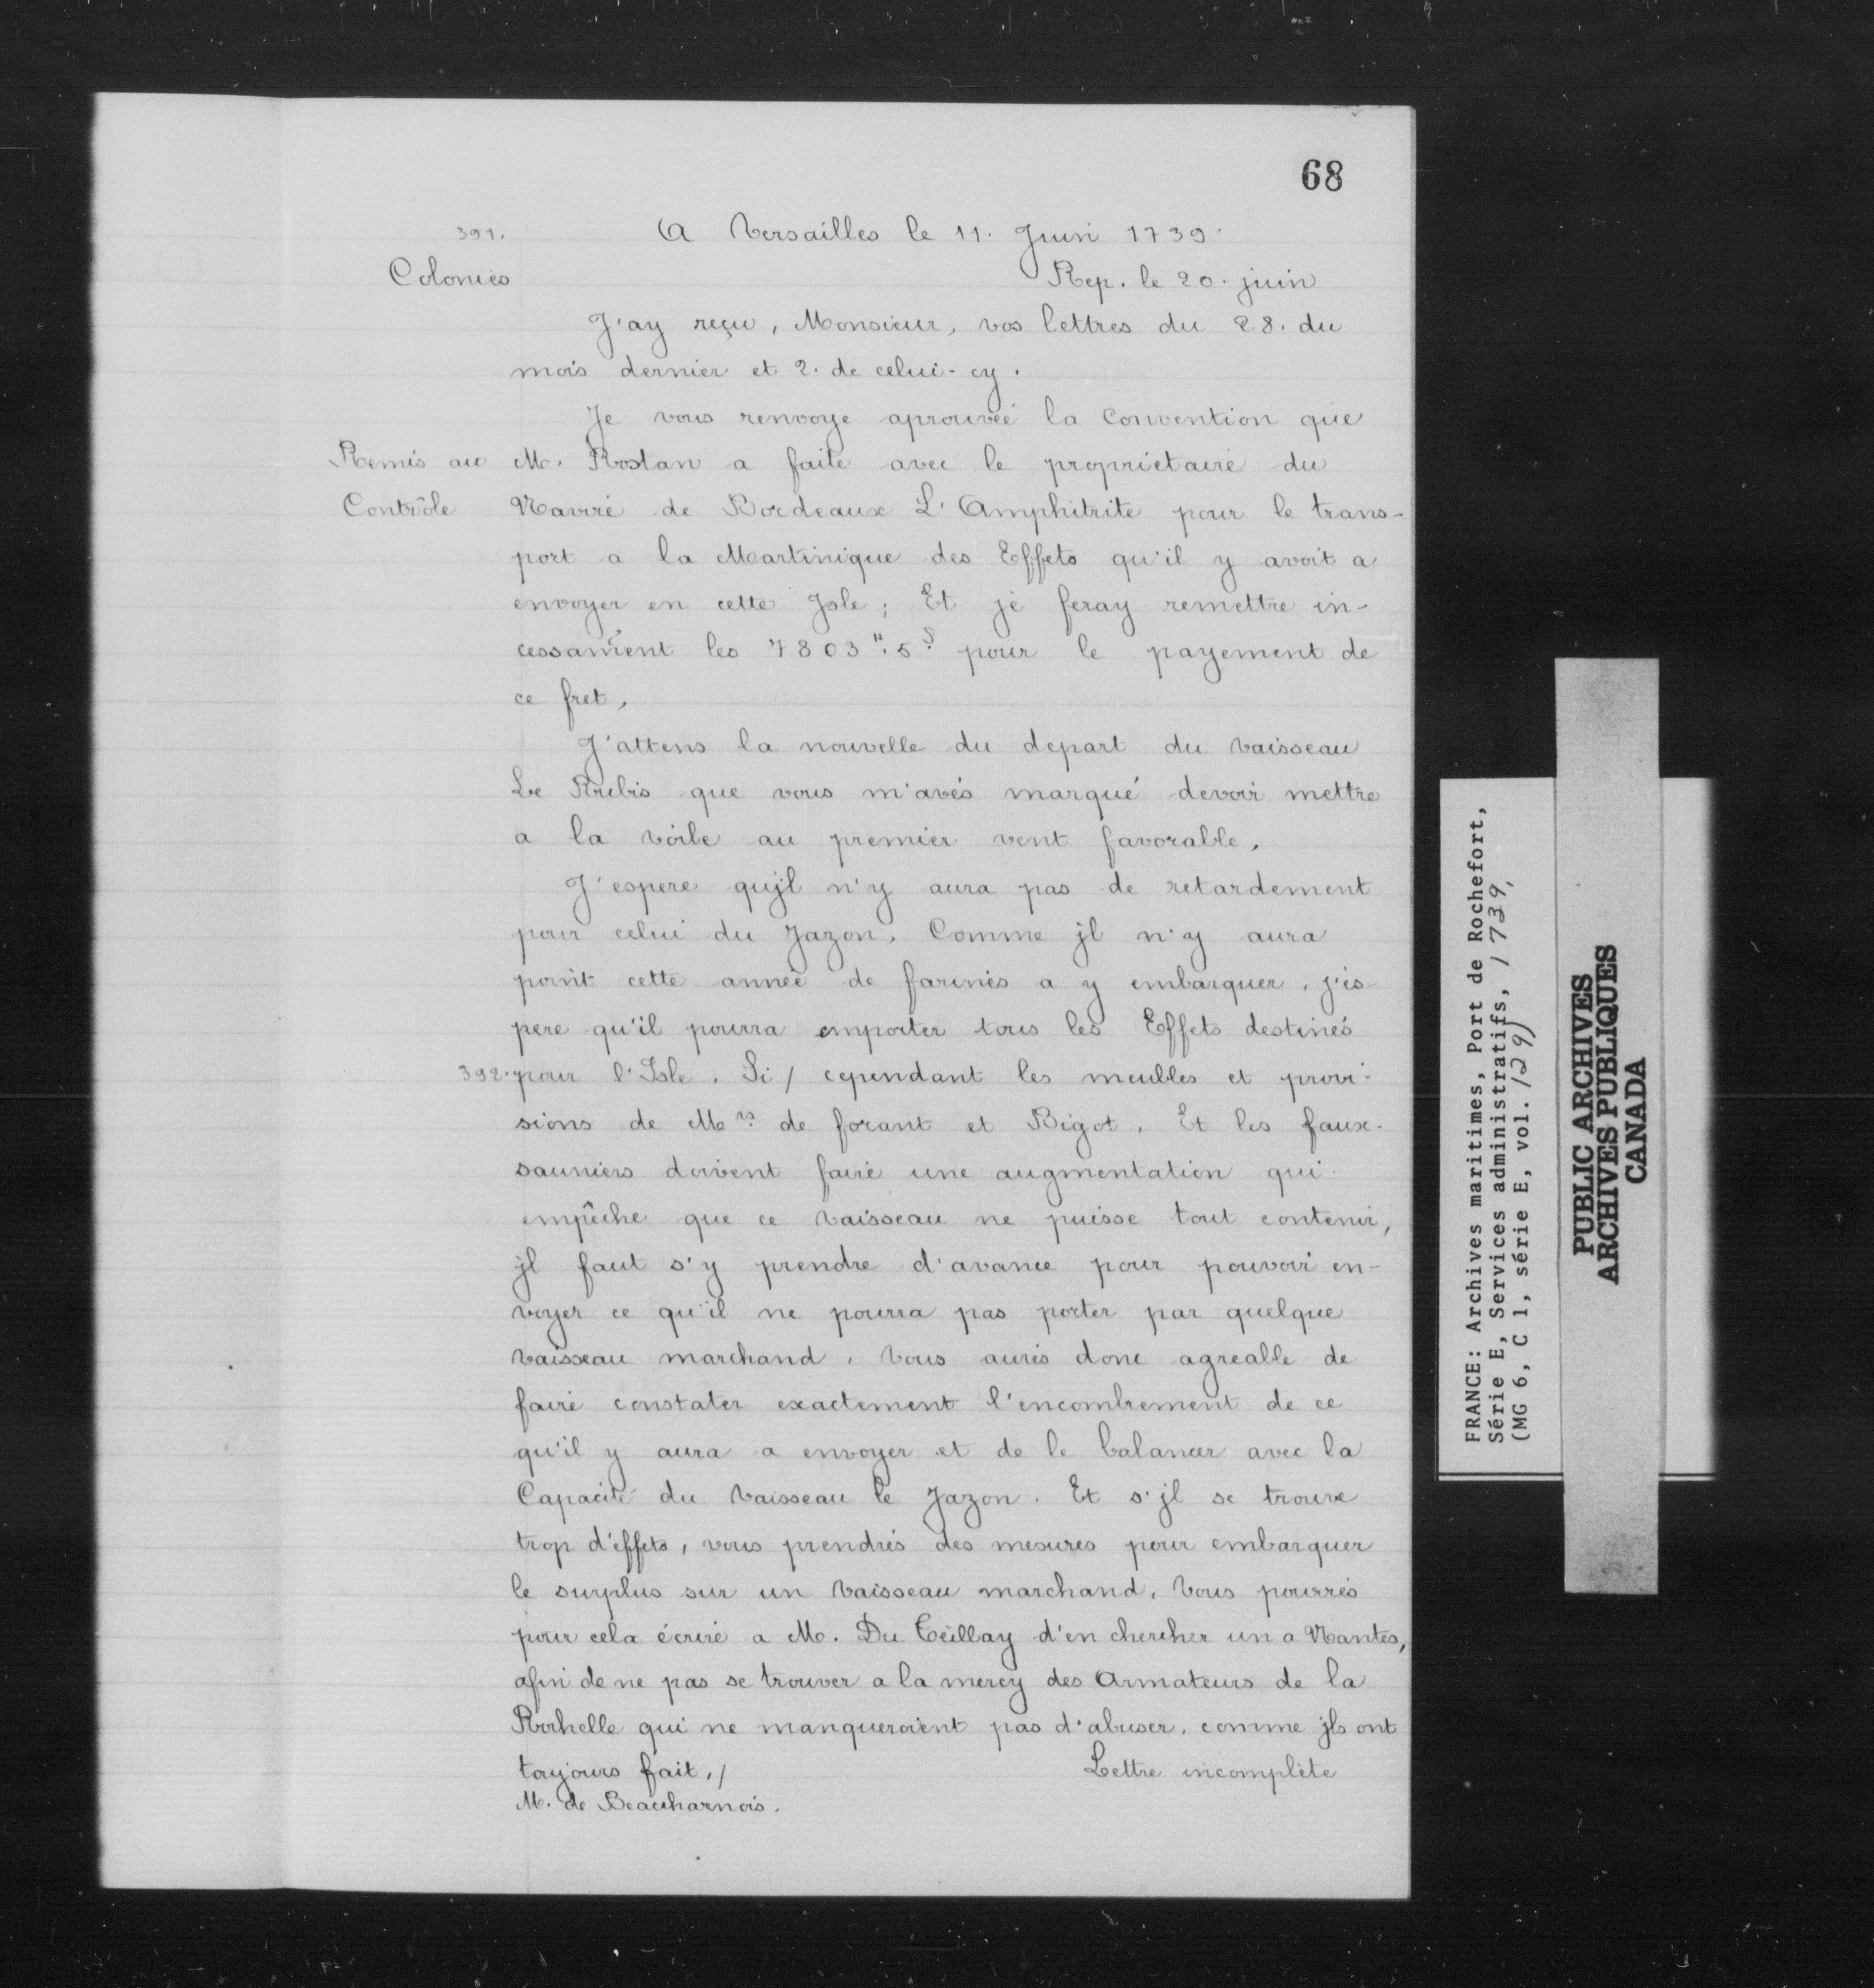 68
391. A Versailles le 11. Juin 1739.
Colonies Rep. le 20. juin
J'ay reçu, Monsieur, vos lettres du 28. du
mois dernier et 2. de celui-cy.
Je vous renvoye aprouvée la Convention que
Remis au M. Rostan a faite avec le propriétaire du
Contrôle Navire de Bordeaux L'Amphitrite pour le trans-
port a la Martinique des Effets qu'il y avoit a
envoyer en cette Jsle; Et je feray remettre in-
cessam̃ent les 7803".5.s pour le payement de
ce fret,
J'attens la nouvelle du depart du Vaisseau
Le Rubis que vous m'avés marqué devoir mettre
a la voile au premier vent favorable.
J'espere qujl n'y aura pas de retardement
pour celui du Jazon. Comme jl n'y aura
point cette année de farines a y embarquer, j'es-
pere qu'il pourra emporter tous les Effets destinés
392. pour l'Isle. Si / cependant les meubles et provi-
sions de Mrs. de forant et Bigot. Et les faux-
sauniers doivent faire une augmentation qui
empêche que ce Vaisseau ne puisse tout contenir,
jl faut s'y prendre d'avance pour pouvoir en-
voyer ce qu'il ne pourra pas porter par quelque
Vaisseau marchand. Vous aurés donc agreable de
faire constater exactement l'encombrement de ce
qu'il y aura a envoyer et de le balancer avec la
Capacité du Vaisseau le Jazon. Et s'jl se trouve
trop d'éffets, vous prendrés des mesures pour embarquer
le surplus sur un Vaisseau marchand. Vous pourrés
pour cela écrire a M. Du Teillay d'en chercher un a Nantes,
afin de ne pas se trouver a la mercy des Armateurs de la
Rochelle qui ne manqueroient pas d'abuser, comme jls ont
toujours fait./ Lettre incomplète
M. de Beauharnois.
FRANCE: Archives maritimes, Port de Rochefort,
Série E, Services administratifs, 1739,
(MG 6, C 1, série E, vol. 129)
PUBLIC ARCHIVES
ARCHIVES PUBLIQUES
CANADA